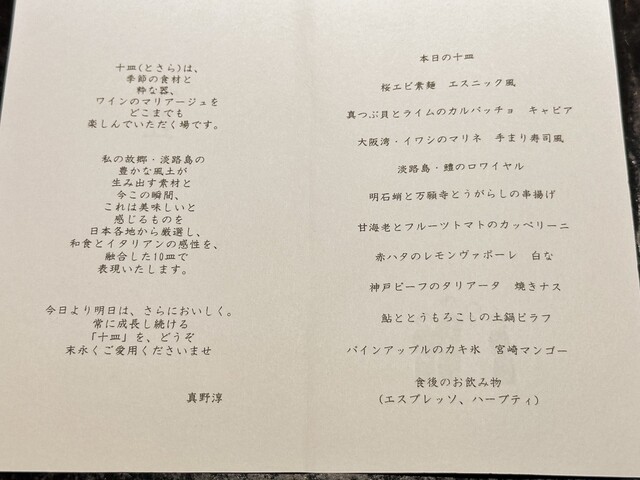 十皿(とさら)は、
季節の食材と
粋な器、
ワインのマリアージュを
どこまでも
楽しんでいただく場です。
私の故郷・淡路島の
豊かな風土が
生み出す素材と
今この瞬間、
これは美味しいと
感じるものを
日本各地から厳選し、
和食とイタリアンの感性を、
融合した10皿で
表現いたします。
今日より明日は、さらにおいしく。
常に成長し続ける
「十皿」を、どうぞ
末永くご愛用くださいませ
真野淳
本日の十皿
桜エビ素麺 エスニック風
真つぶ貝とライムのカルパッチョ キャビア
大阪湾・イワシのマリネ 手まり寿司風
淡路島・鱧のロワイヤル
明石蛸と万願寺とうがらしの串揚げ
甘海老とフルーツトマトのカッペリーニ
赤ハタのレモンヴァポーレ 白な
神戸ビーフのタリアータ 焼きナス
鮎ととうもろこしの土鍋ピラフ
パインアップルのカキ氷 宮崎マンゴー
食後のお飲み物
(エスプレッソ、ハーブティ)